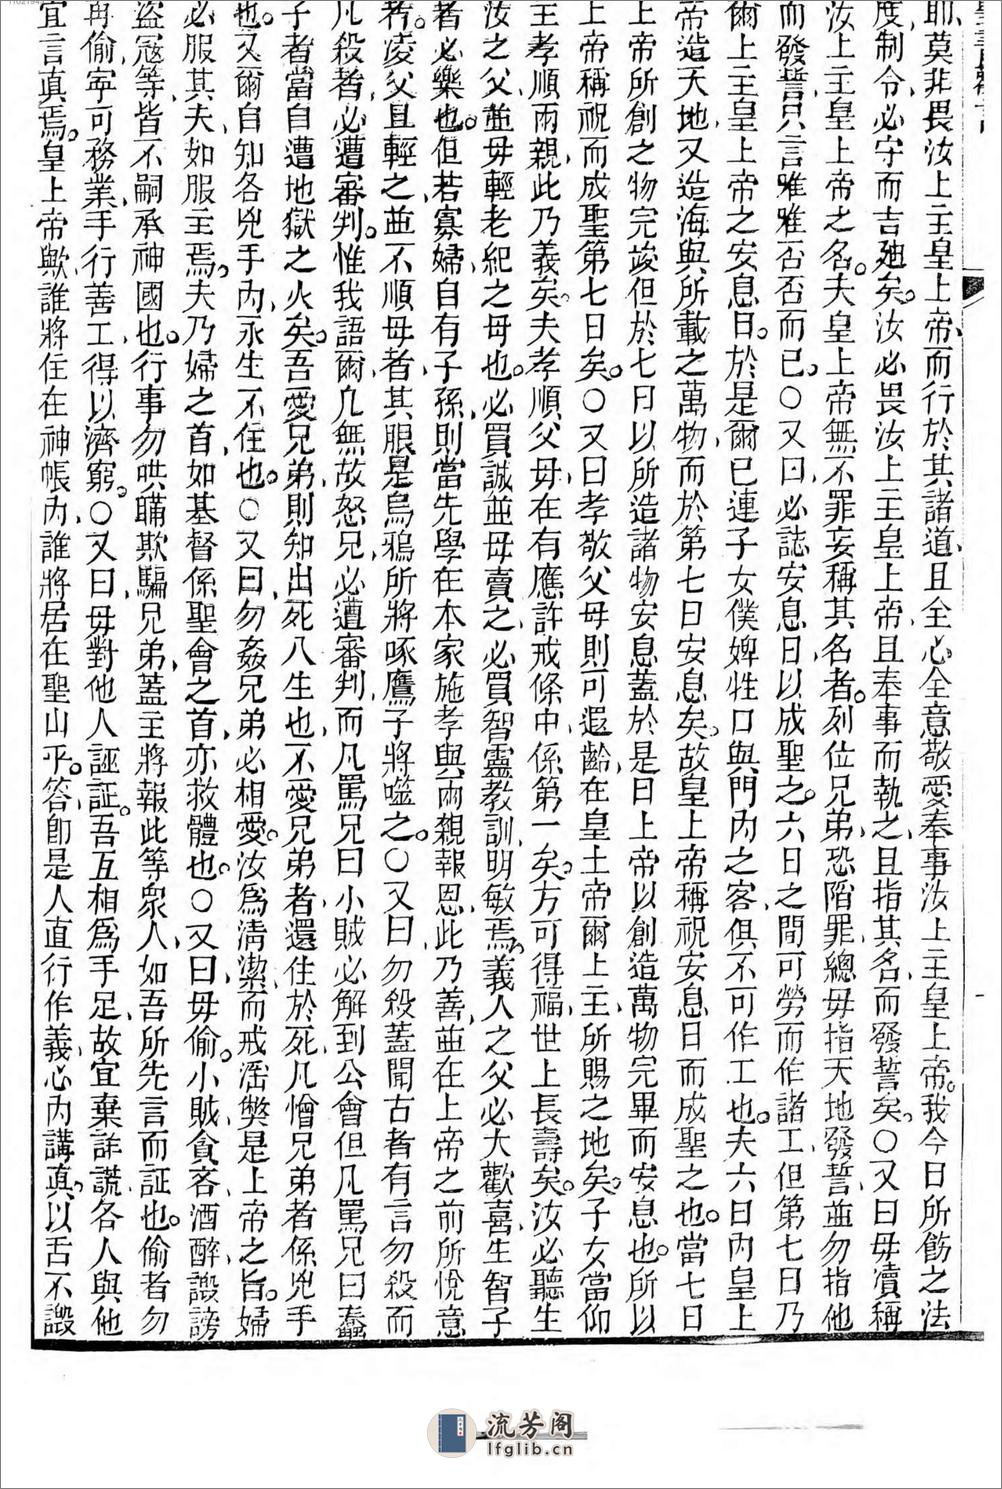 耶莫非畏汝上主皇上帝而行於其諸道且全心全意敬愛奉事汝上主皇上帝我今日所飭之法
度制令必守而吉矣汝必畏汝上主皇上帝且奉事而執之且指其名而發誓矣○又曰毋瀆稱
汝上主皇上帝之名夫皇上帝無不罪妄稱其名者列位兄弟恐陷罪總毋指天地發誓並勿指他
而發誓只言唯唯否否而已○又曰必誌安息日以成聖之六日之間可勞而作諸工但第七日乃
爾上主皇上帝之安息日於是爾已連子女僕婢牲口與門內之客俱不可作工也夫六日內皇上
帝造天地又造海與所載之萬物而於第七日安息矣故皇上帝稱祝安息日而成聖之也當七日
上帝所創之物完竣但於七日以所造諸物安息蓋於是日上帝以創造萬物完畢而安息也所以
上帝稱祝而成聖第七日矣○又曰孝敬父母則可遐齡在皇上帝爾上主所賜之地矣子女當仰
王孝順兩親此乃義矣夫孝順父母在有應許戒條中係第一矣方可得福世上長壽矣汝必聽生
汝之父並毋輕老紀之母也必買誠並毋賣之必買智靈教訓明敏焉義人之父必大歡喜生智子
者必樂也但若寡婦自有子孫則當先學在本家施孝與兩親報恩此乃善並在上帝之前所悅意
者凌父且輕之並不順母者其眼是烏鴉所將啄鷹子將噬之○又曰勿殺蓋聞古者有言勿殺而
凡殺者必遭審判惟我語爾凡無故怒兄必遭審判而凡罵兄曰小賊必解到公會但凡罵兄曰蠢
子者當自遭地獄之火矣吾愛兄弟則知出死八生也不愛兄弟者還住於死凡憎兄弟者係兇手
也又爾自知各兇手內永生不住也○又曰勿姦兄弟必相愛汝為清潔而戒淫弊是上帝之旨婦
必服其夫如服主焉夫乃婦之首如基督係聖會之首亦救體也○又曰毋偷小賊貪吝酒醉譭謗
盜寇等皆不嗣承神國也行事勿哄瞞欺騙兄弟蓋主將報此等眾人如吾所先言而証也偷者勿
再偷寧可務業手行善工得以濟窮○又曰毋對他人誣証吾互相為手足故宜棄詐謊各人與他
宜言真焉皇上帝歟誰將住在神帳內誰將居在聖山乎答即是人直行作義心內講真以舌不譭
流芳阁
lfglib.cn